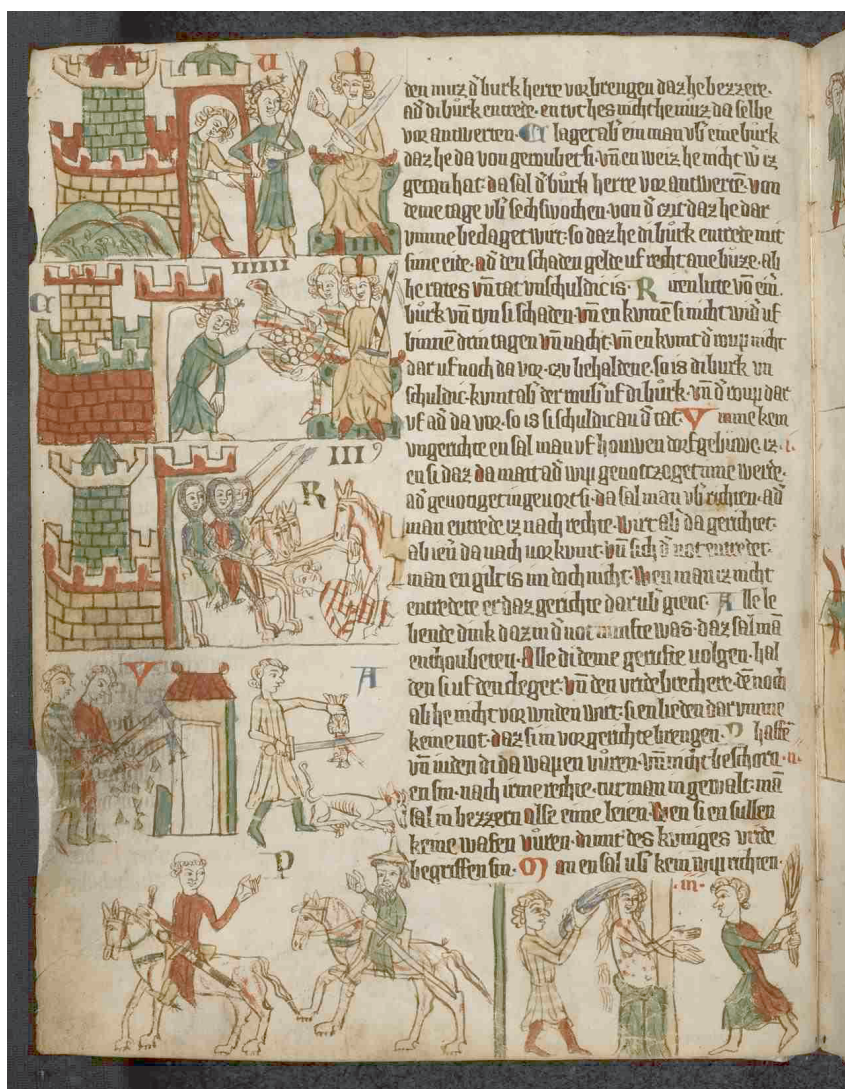 den muz d̕ burk herre vorbrengen daz he bezzere.
ad̕ di burk entrete. en tut hes nicht he muz da selbe
vor antwerten. Clagetab̕ ein man ub̕ eine burk
daz he da von geroubet si. vn̄ en weiz he nicht w̕ iz
getan hat. da sal d̕ burk herre vor antwertē. von
deme tage ub̕ sechs wochen. von d̕ czit daz he dar
umme bedaget wirt. so daz he di burk entrede mit
sime eide. ad̕ den schaden gelde uf recht ane buze. ab
he rates vn̄ tat unschuldic is. Riten lute von ein̄.
burk vn̄ tun si schaden. vn̄ en kumē si nicht wid̕ uf
binnē drin tagen vn̄ nacht. vn̄ en kumt d̕ roup nicht
dar uf noch da vor. czu behaldene. so is di burk un
schuldic. kumt ab̕ der roub uf di burk. vn̄ d̕ roup dar
uf ad̕ da vor. so is si schuldic an d̕ tat. Umme kein
ungerichte en sal man uf houwen dorf gebuwe. iz
en si daz da mait ad̕ wip genotczoget inne werde.
ad̕ genotiget in gevort si. da sal man ub̕ richten. ad̕
man entrede iz nach rechte. wirt ab̕ da gerichtet.
ab ien̄ da nach vor kumt. vn̄ sich d̕ not entredet.
man en gilt is im doch nicht. Wen man iz nicht
entredete er daz gerichte dar ub̕ gienc. Alle le
bende dink daz in d̕ not nunfte was. daz sal mā
enthoubeten. Alle di deme gerufte volgen. hal
den si uf den cleger. vn̄ den vrede brechere. dēnoch
ab he nicht vor wnden wirt. si en liden dar umme
keine not. daz si in vor gerichte brengen. Phaffē
vn̄ iuden di da wapen vuren. vn̄ nicht beschorn
en sin. nach irme rechte. tut man in gewalt. mā
sal in bezzern alse eime leien. Wen si en sullen
keine wafen vuren. di mit des kuniges vrede
begriffen sin. Man en sal ub̕ kein wip richten.